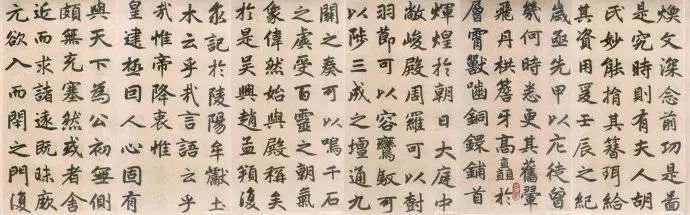 煥文深念前功是啚
是究時則有夫人胡
氏妙能捐其簪珥給
其資用爰壬辰之紀
歲亟先甲以庀徒曾
幾何時悉更其舊翬
飛丹栱簷牙高矗於
層霄獸嚙銅鐶鋪首
輝煌於朝日大庭中
敞峻殿周羅可以樹
羽節可以容鸞馭可
以陟三成之壇通九
關之奏可以鳴千石
之虡受百靈之朝氣
象偉然始與殿稱矣
於是吳興趙孟頫復
求記於陵陽牟巘土
木云乎哉言語云乎
哉惟帝降衷惟
皇建極回人心固有
與天下為公初無側
頗無充塞然或者舍
近而求諸遠既昧厥
元欲入而閉之門復